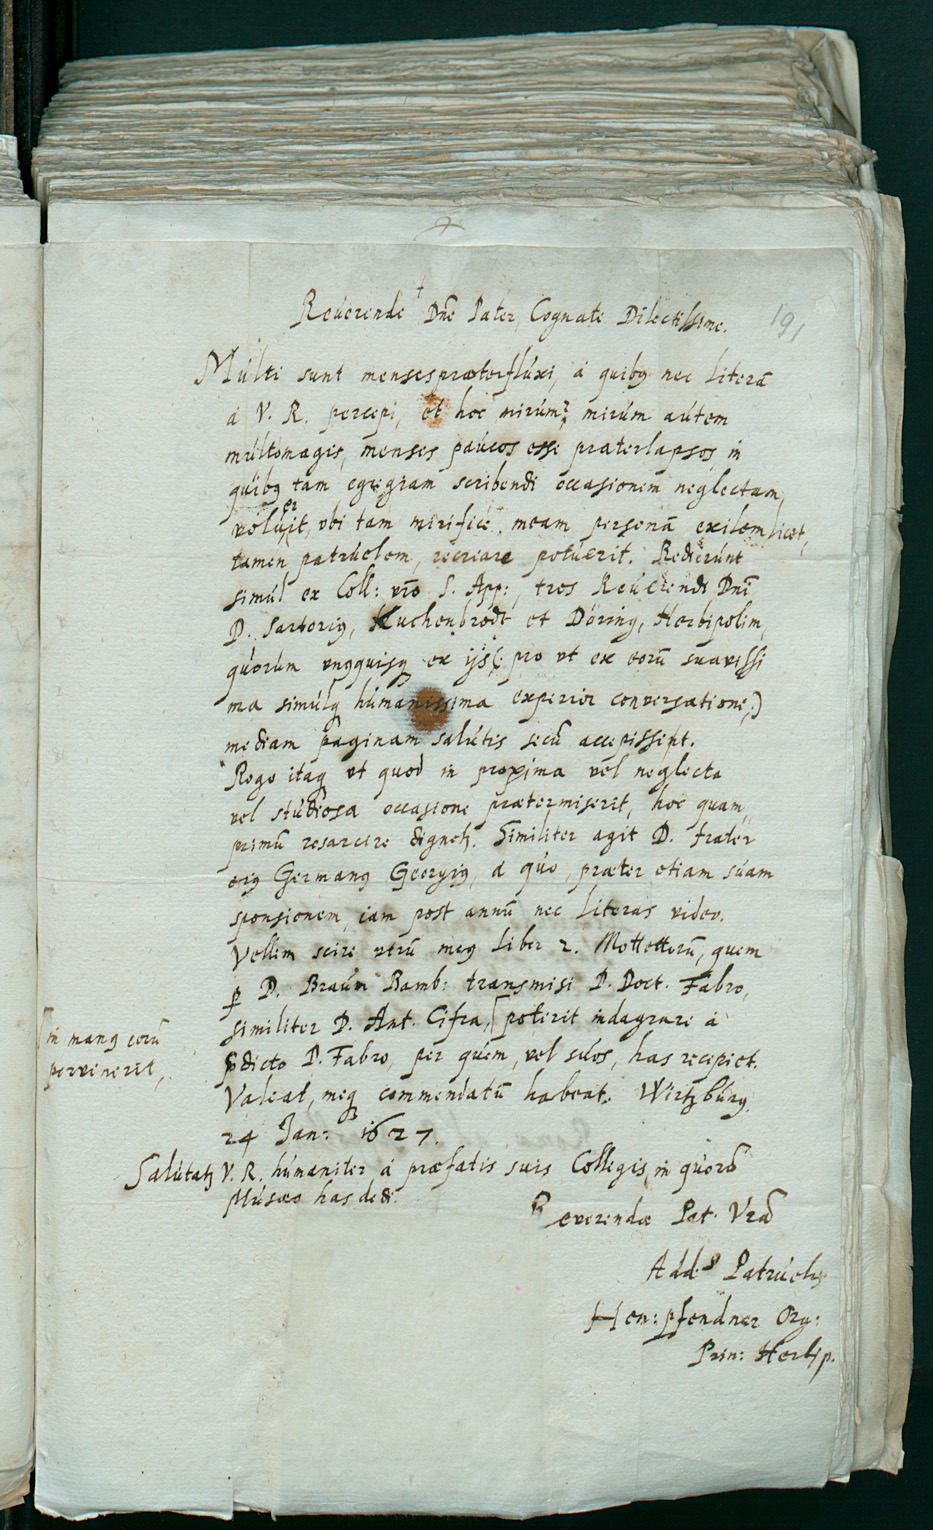 191
Reuerende Dn̄e Pater, Cognate Dilectissime.
Múlti sunt menses præterflúxi, à quibꝯ nec literā
á V. R. percepi, et hoc mirúm? mirúm aútem
múltòmagis, menses paúcos esse præterlapsos, in
quibꝯ tam egregiam scribendi occasionem neglectam
voluerit, vbi tam mirificè meam personā exilem licet,
tamen patrúelem, recreare potúerit. Redierúnt
simúl ex Coll: vr̄o S. App:, tres Reúerendi Dn̄i
D. Sartoriꝯ, Kuchenbrodt et Döring, Herbipolim,
quorúm vnꝯquisq ex ijs (: pro vt ex eorū suavissi
ma simúlq húmanissima experior conversatione,)
mediam paginam salútis secū accepissent.
Rogo itaq vt quod in proxima vel neglecta
vel stúdiosa occasione prætermiserit, hoc quam
primū resarcire digneꝶ. Similiter agit D. frater
eiꝯ Germanꝯ Georgiꝯ, à quo, præter etiam súam
sponsionem, iam post annū nec literas video.
Vellim scire vtrū meꝯ Liber 2. Mottettorū, quem
ꝑ D. Braún Bamb: transmisi D. Doct. Fabro,
similiter D. Ant. Cifra, [poterit indagrare à
in manꝯ eorū
pervenerit,
p̄dicto D. Fabro, per quem, vel súos, has recipiet.
Valeat, meq commendatū habeat. Wirtzbúrg.
24 Jan: 1627.
Salútatꝶ V. R. húmaniter á præfatis suis Collegis, in quorū
Músæo has dedi.
Reverendæ Pat. Vr̄æ
Add.s Patrúelis
Hen: pfendner Org:
Prin: Herbip.